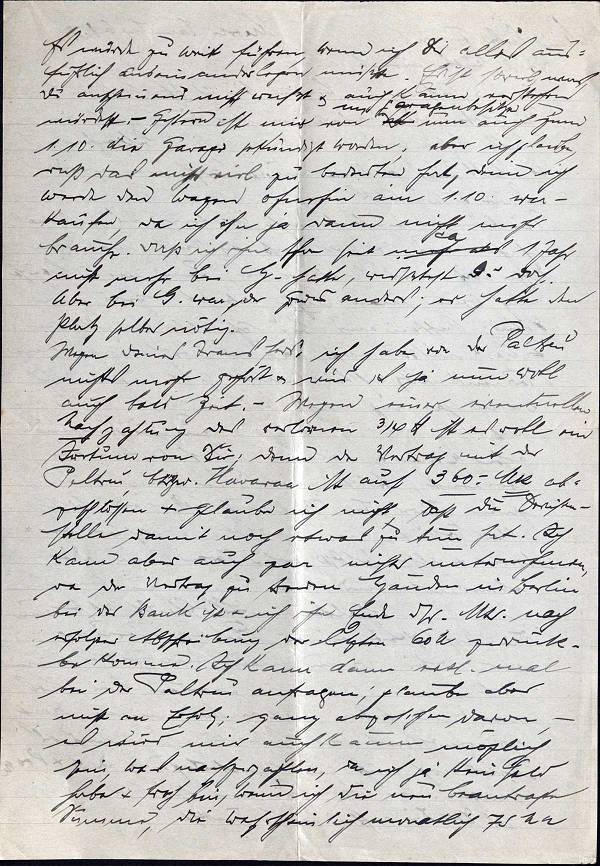 Es würde zu weit führen, wenn ich Dir alles aus-
führlich auseinanderlegen müßte.
Du auch kaum verstehen
würdest. – Gestern ist mir von nun auch zum
1.10. die Garage gekündigt worden, aber ich glaube
daß das nicht viel zu bedeuten hat, denn ich
werde den Wagen ohnehin am 1.10. ver-
kaufen, da ich ihn ja dann nicht mehr
brauche. Daß ich ihn seit 1 Jahr
nicht mehr bei G. hatte,
Aber bei G. war der anders; er hatte den
Platz selber nötig.
Wegen Deines Transfers, ich habe von der Paltreu
nichts mehr gehört & wird es ja nun wohl
auch bald Zeit. – Wegen einer eventuellen
Nachzahlung der ist es wohl ein
Irrtum von Dir; denn der Vertrag mit der
Paltreu, bezw. Haavara ist auf 360.– Mk ab-
geschlossen + glaube ich nicht, daß die Devisen-
stelle damit noch etwas zu tun hat. Ich
kann aber auch gar nichts unternehmen,
da der Vertrag zu Händen in Berlin
bei der Bank ist & ich ihn Ende ds. Mts. nach
erfolgter Abschreibung der letzten 60 M zurück-
bekomme. Ich kann dann evtl. mal
bei der Paltreu anfragen; glaube aber
nicht an Erfolg; ganz abgesehen davon, –
es wird mir auch kaum möglich
sein, was nachzuzahlen, da ich ja kein Geld
habe + froh bin, wenn ich die neu beantragte
Summe, die wahrscheinlich monatlich